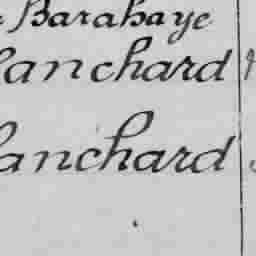 Barahaye
lanchard
lanchard